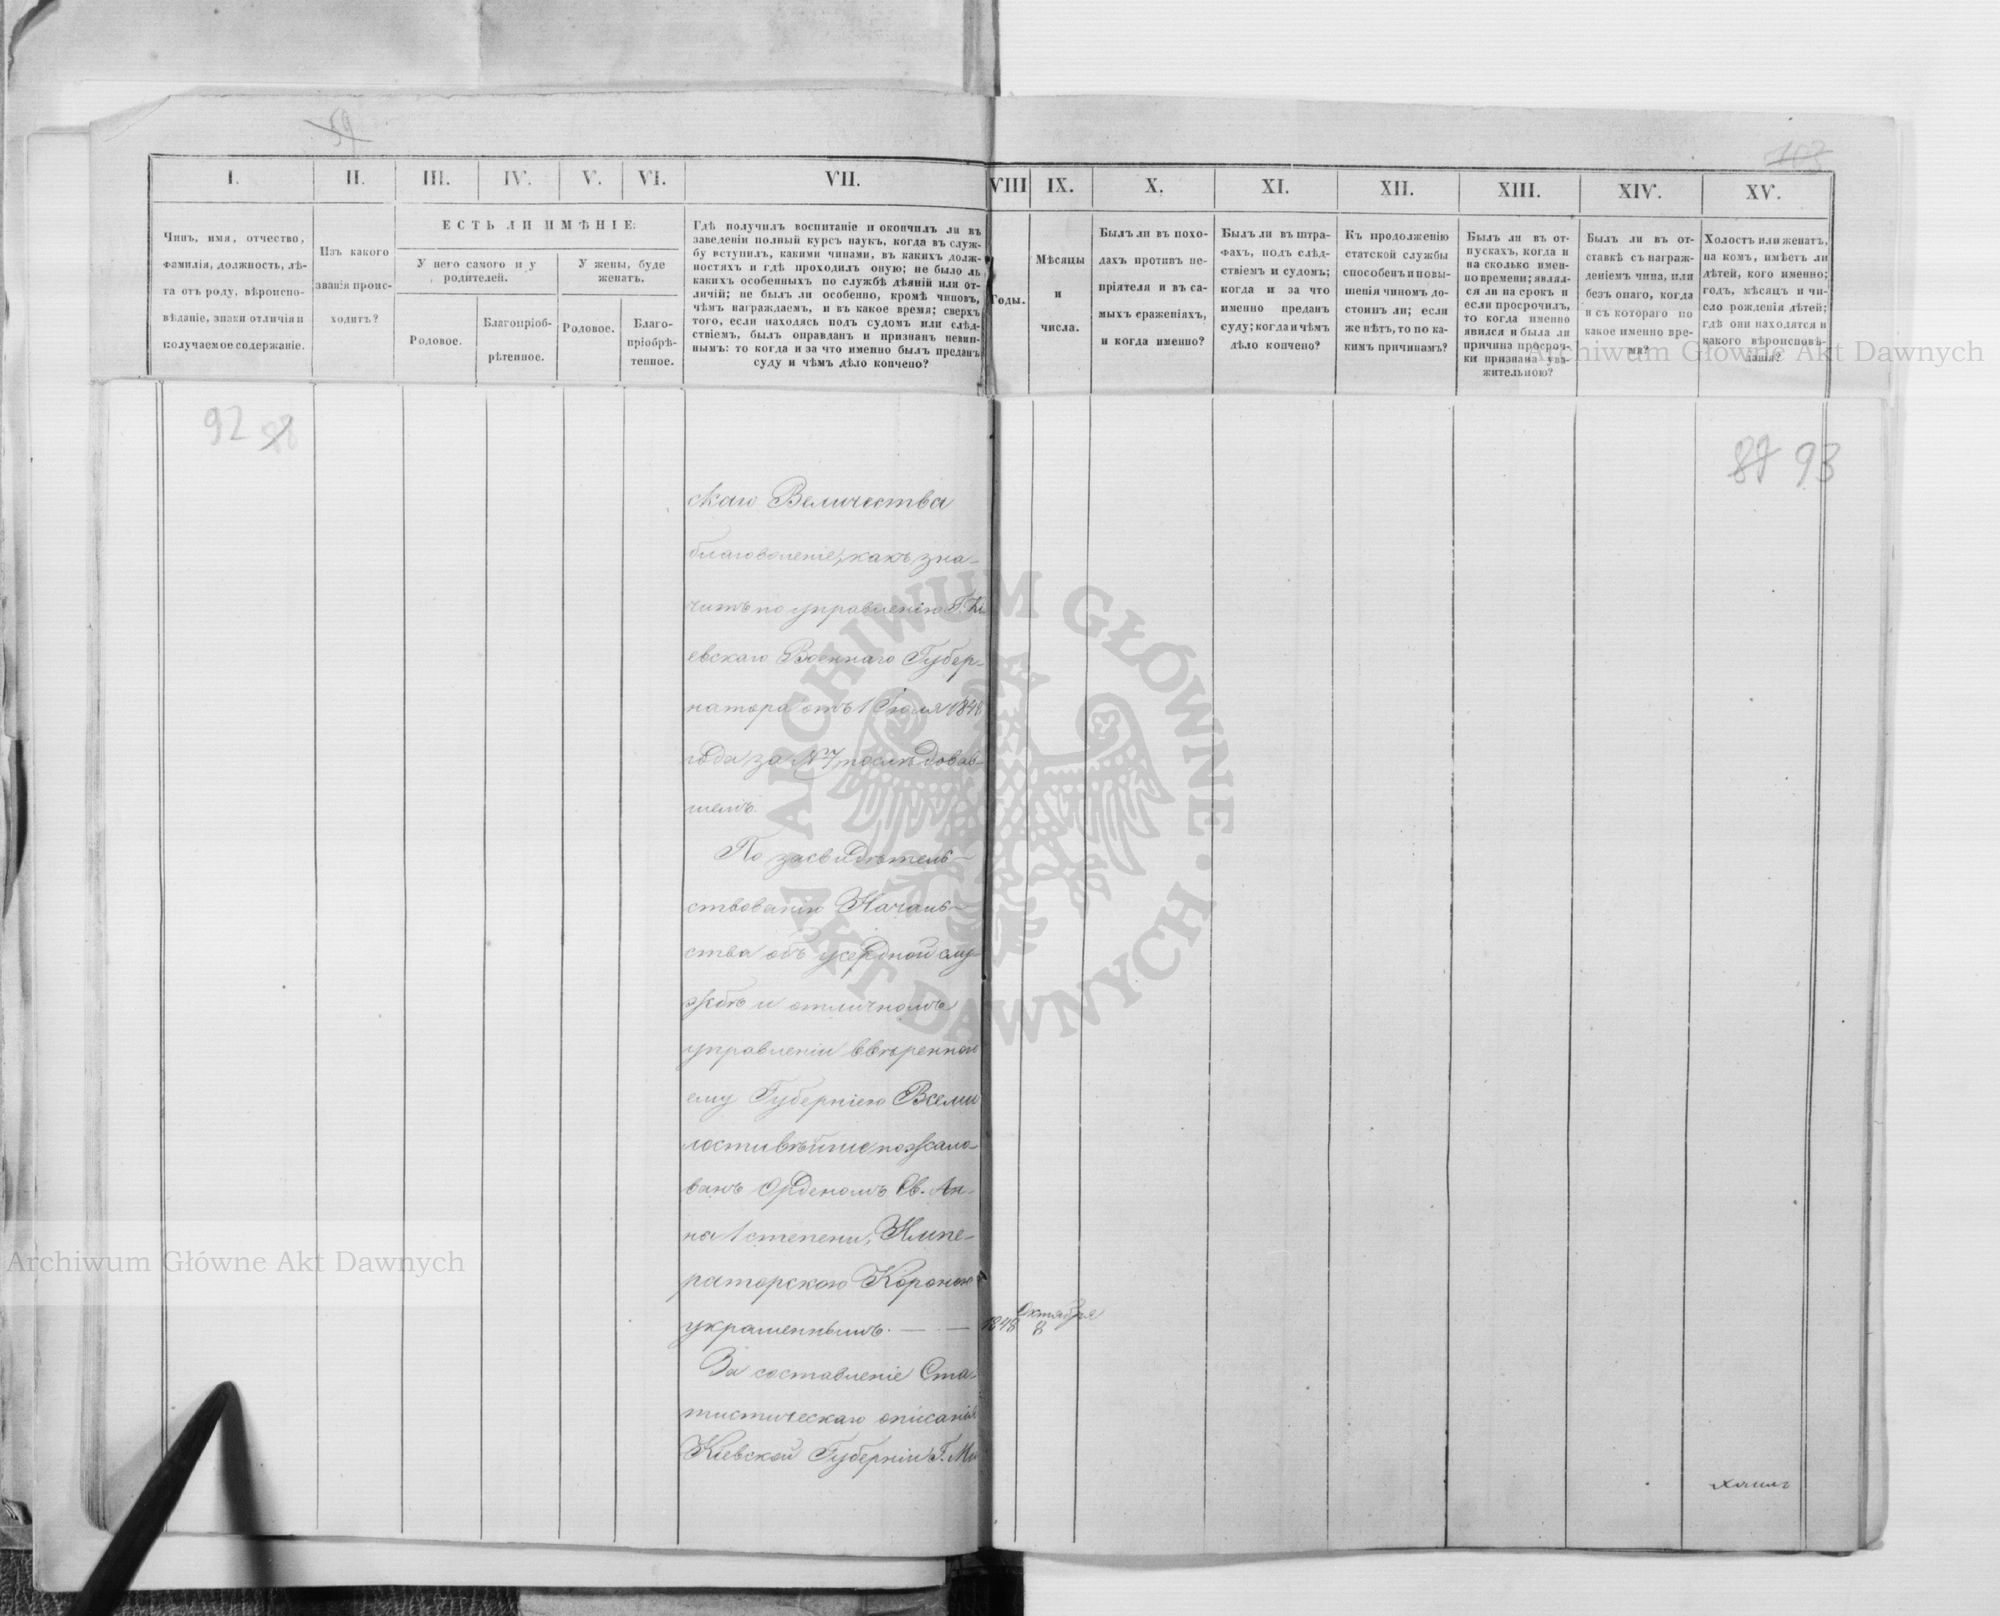 59
103
I.
II.
III.
IV.
V.
VI.
VII.
VIII
IX.
X.
XI.
XII.
XIII.
XIV.
XV.
Чинъ, имя, отчество,
фамилія, должность, лѣ-
та отъ роду, вѣроиспо-
вѣданіе, знаки отличія и
получаемое содержаніе.
Изъ какого
званія проис-
ходитъ?
ЕСТЬ ЛИ ИМѢНІЕ:
У него самого и у
родителей.
У жены, буде
женатъ.
Родовое.
Благопріоб-
рѣтенное.
Родовое.
Благо-
пріобрѣ-
тенное.
Гдѣ получилъ воспитаніе и окончилъ ли въ
заведеніи полный курсъ наукъ, когда въ служ-
бу вступилъ, какими чинами, въ какихъ долж-
ностяхъ и гдѣ проходилъ оную; не было ль
какихъ особенныхъ по службѣ дѣяній или от-
личій; не былъ ли особенно, кромѣ чиновъ,
чѣмъ награждаемъ, и въ какое время; сверхъ
того, если находясь подъ судомъ или слѣд-
ствіемъ, былъ оправданъ и признанъ невин-
нымъ: то когда и за что именно былъ преданъ
суду и чѣмъ дѣло кончено?
Годы.
Мѣсяцы
и
числа.
Былъ ли въ похо-
дахъ противъ не-
пріятеля и въ са-
мыхъ сраженіяхъ,
и когда именно?
Былъ ли въ штра-
фахъ, подъ слѣд-
ствіемъ и судомъ;
когда и за что
именно преданъ
суду; когда и чѣмъ
дѣло кончено?
Къ продолженію
статской службы
способенъ и повы-
шенія чиномъ до-
стоинъ ли; если
же нѣтъ, то по ка-
кимъ причинамъ?
Былъ ли въ от-
пускахъ, когда и
на сколько имен-
но времени; являл-
ся ли на срокъ и
если просрочилъ,
то когда именно
явился и была ли
причина просроч-
ки признана ува-
жительною?
Былъ ли въ от-
ставкѣ съ награж-
деніемъ чина, или
безъ онаго, когда
и съ котораго по
какое именно вре-
мя?
Холостъ или женатъ,
на комъ, имѣетъ ли
дѣтей, кого именно;
годъ, мѣсяцъ и чи-
сло рожденія дѣтей;
гдѣ они находятся и
какого вѣроисповѣ-
данія?
Archiwum Główne Akt Dawnych
92 88
89 93
скаго Величества
благоволеніе, какъ зна-
читъ по управленію Г. Кі
евскаго Военнаго Губер-
натора отъ 1 Іюля 1848
года за № 7, послѣдовав-
шемъ.
По засвидѣтель-
ствованію Началь-
ства объ усердной слу-
жбѣ и отличномъ
управленіи ввѣренною
ему Губерніею Всеми
лостивѣйше пожало-
ванъ Орденомъ Св. Ан-
на 1 степени, Импе-
раторскою Короною
украшеннымъ. — — 1848 Октября 8
За составленіе Ста-
тистическаго описанія
Кіевской Губерніи Г. Ми
ARCHIWUM GŁÓWNE · AKT DAWNYCH ·
Archiwum Główne Akt Dawnych